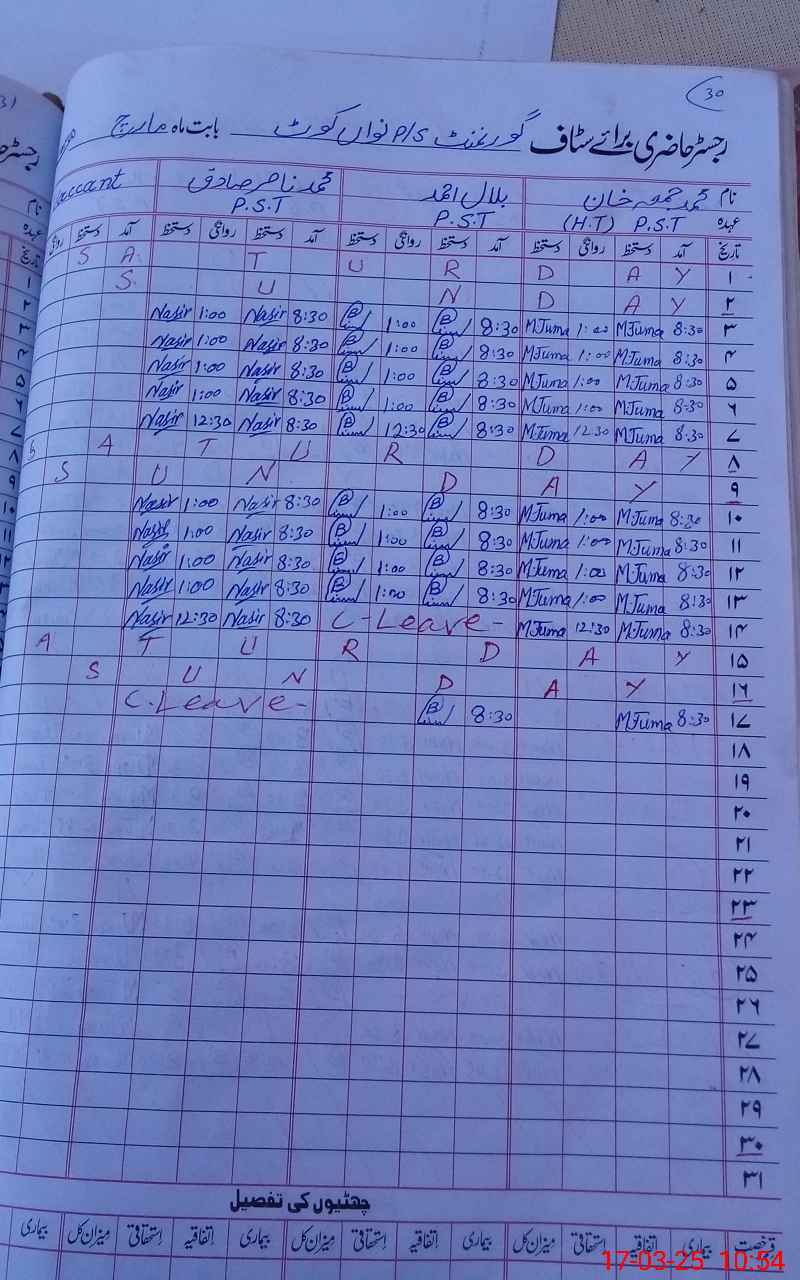 30
رجسٹر حاضری برائے سٹاف گورنمنٹ P/S نواں کوٹ بابت ماہ مارچ
نام محمد جمعہ خان بلال احمد محمد ناصر صادق Vaccant
عہدہ P.S.T (H.T) P.S.T P.S.T
تاریخ آمد دستخط روانگی دستخط آمد دستخط روانگی دستخط آمد دستخط روانگی دستخط آمد دستخط
۱ S A T U R D A Y
۲ S U N D A Y
۳ 8:30 M.Juma 1:00 M.Juma 8:30 1:00 8:30 Nasir 1:00 Nasir
۴ 8:30 M.Juma 1:00 M.Juma 8:30 1:00 8:30 Nasir 1:00 Nasir
۵ 8:30 M.Juma 1:00 M.Juma 8:30 1:00 8:30 Nasir 1:00 Nasir
۶ 8:30 M.Juma 1:00 M.Juma 8:30 1:00 8:30 Nasir 1:00 Nasir
۷ 8:30 M.Juma 12:30 M.Juma 8:30 12:30 8:30 Nasir 12:30 Nasir
۸ S A T U R D A Y
۹ S U N D A Y
۱۰ 8:30 M.Juma 1:00 M.Juma 8:30 1:00 8:30 Nasir 1:00 Nasir
۱۱ 8:30 M.Juma 1:00 M.Juma 8:30 1:00 8:30 Nasir 1:00 Nasir
۱۲ 8:30 M.Juma 1:00 M.Juma 8:30 1:00 8:30 Nasir 1:00 Nasir
۱۳ 8:30 M.Juma 1:00 M.Juma 8:30 1:00 8:30 Nasir 1:00 Nasir
۱۴ 8:30 M.Juma 12:30 M.Juma C-Leave- 8:30 Nasir 12:30 Nasir
۱۵ A T U R D A Y
۱۶ S U N D A Y
۱۷ 8:30 M.Juma 8:30 C.Leave-
۱۸
۱۹
۲۰
۲۱
۲۲
۲۳
۲۴
۲۵
۲۶
۲۷
۲۸
۲۹
۳۰
۳۱
چھٹیوں کی تفصیل
رخصت بیماری اتفاقیہ استحقاقی میزان کل بیماری اتفاقیہ استحقاقی میزان کل بیماری اتفاقیہ استحقاقی میزان کل بیماری
17-03-25 10:54